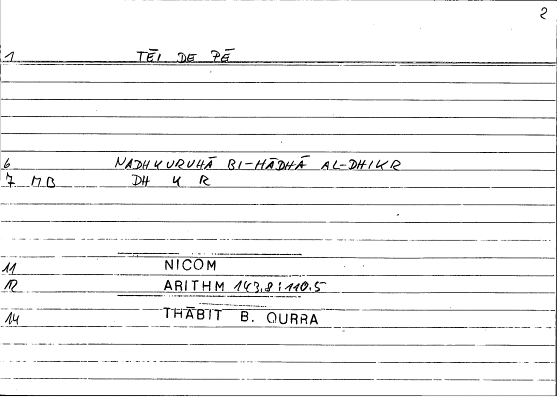 2
1 TĒI DE PĒ
6 NADHKURUHĀ BI-HĀDHĀ AL-DHIKR
7 MB DH K R
11 NICOM
12 ARITHM 143.8 : 110.5
14 THĀBIT B. QURRA